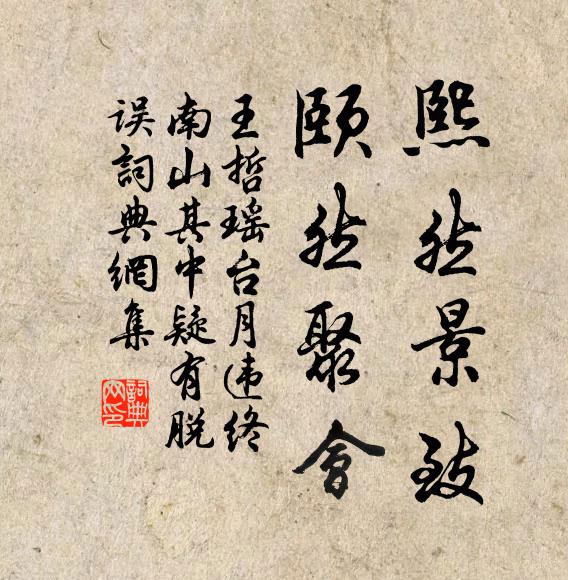 熙然景致
頤然聚會
王哲瑶台月违终
南山其中疑有脱
误詞典網集
詞典网印